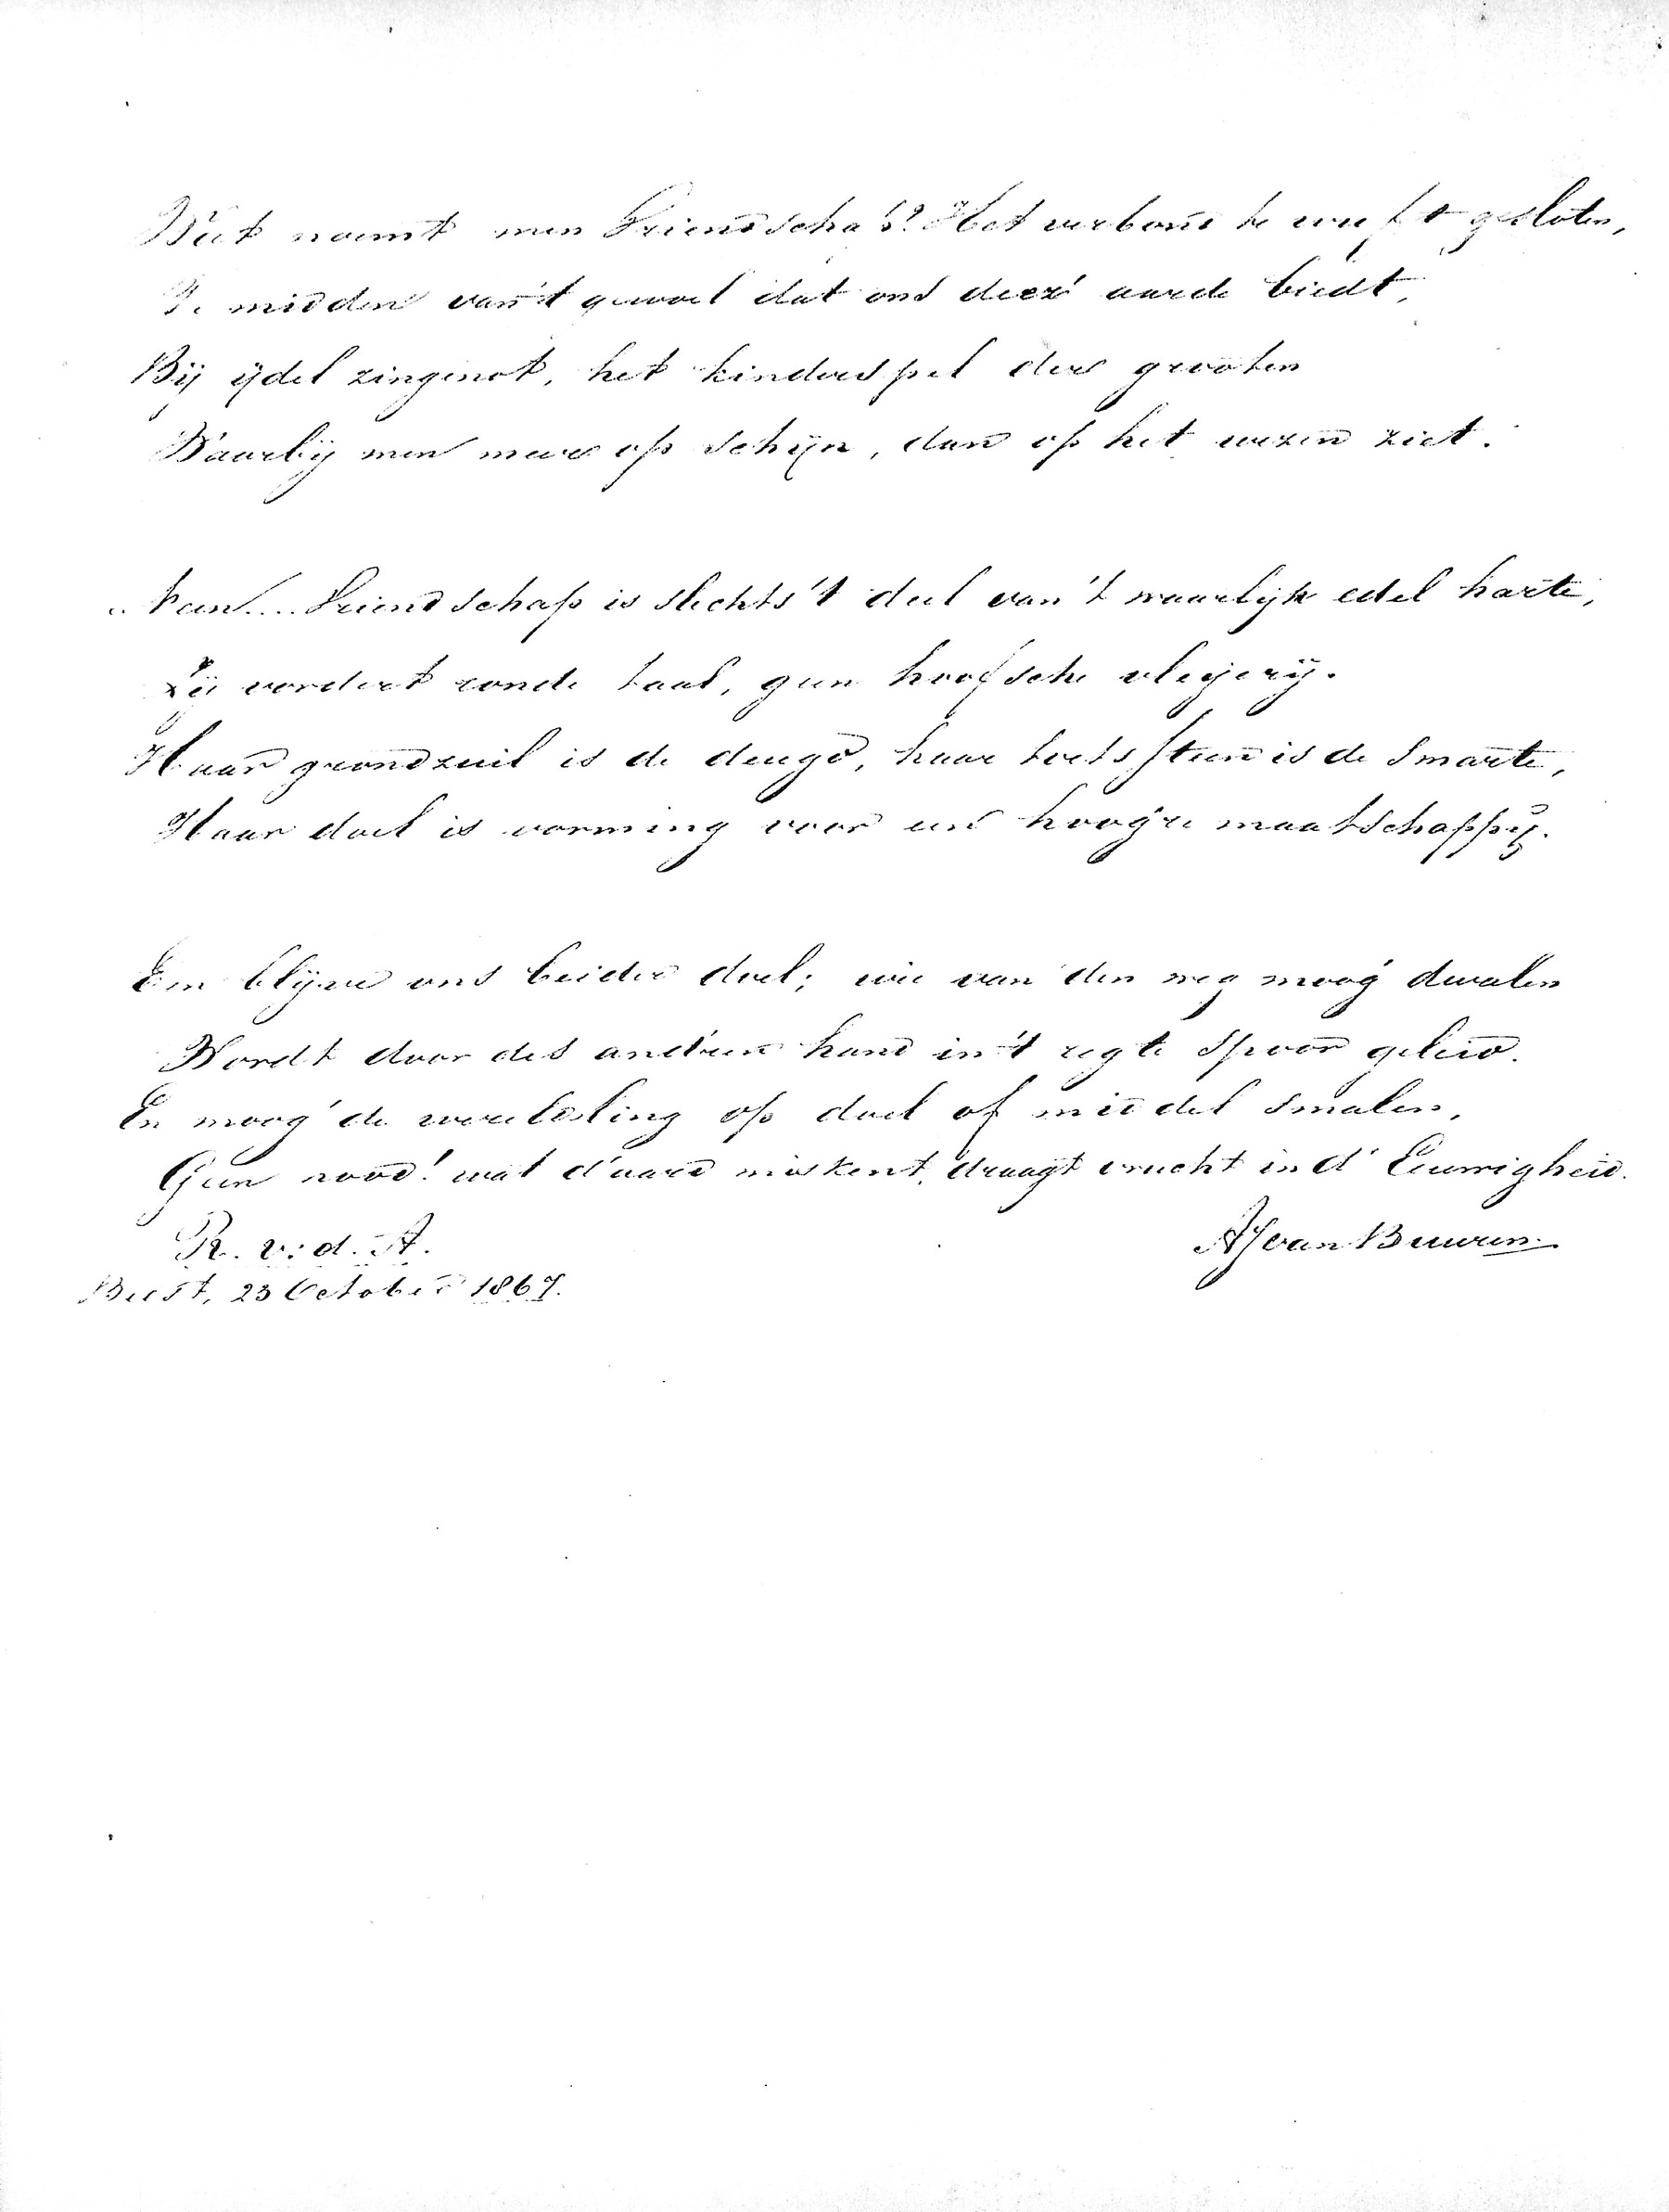 Wat noemt men Vriendschap? Het verbond te wuft gesloten,
Te midden van 't gewoel dat ons deez' aarde biedt,
Bij ijdel zingenot, het kinderspel der grooten
Waarbij men meer op schijn, dan op het wezen ziet.
Neen... Vriendschap is slechts 't deel van 't waarlijk edel harte,
Zij vordert ronde taal, geen hoofsche vleijerij.
Haar grondzuil is de deugd, haar toetssteen is de smarte,
Haar doel is vorming voor een hoog're maatschappij.
Een blijve ons beider doel; wie van den weg moog' dwalen
Wordt door des and'ren hand in 't regte spoor geleid.
En moog' de wereldling op doel of middel smalen,
Geen nood! wat d'aard miskent, draagt vrucht in d' Eeuwigheid.
R. v. d. A.
AJ van Beuren
Beest, 23 October 1867.